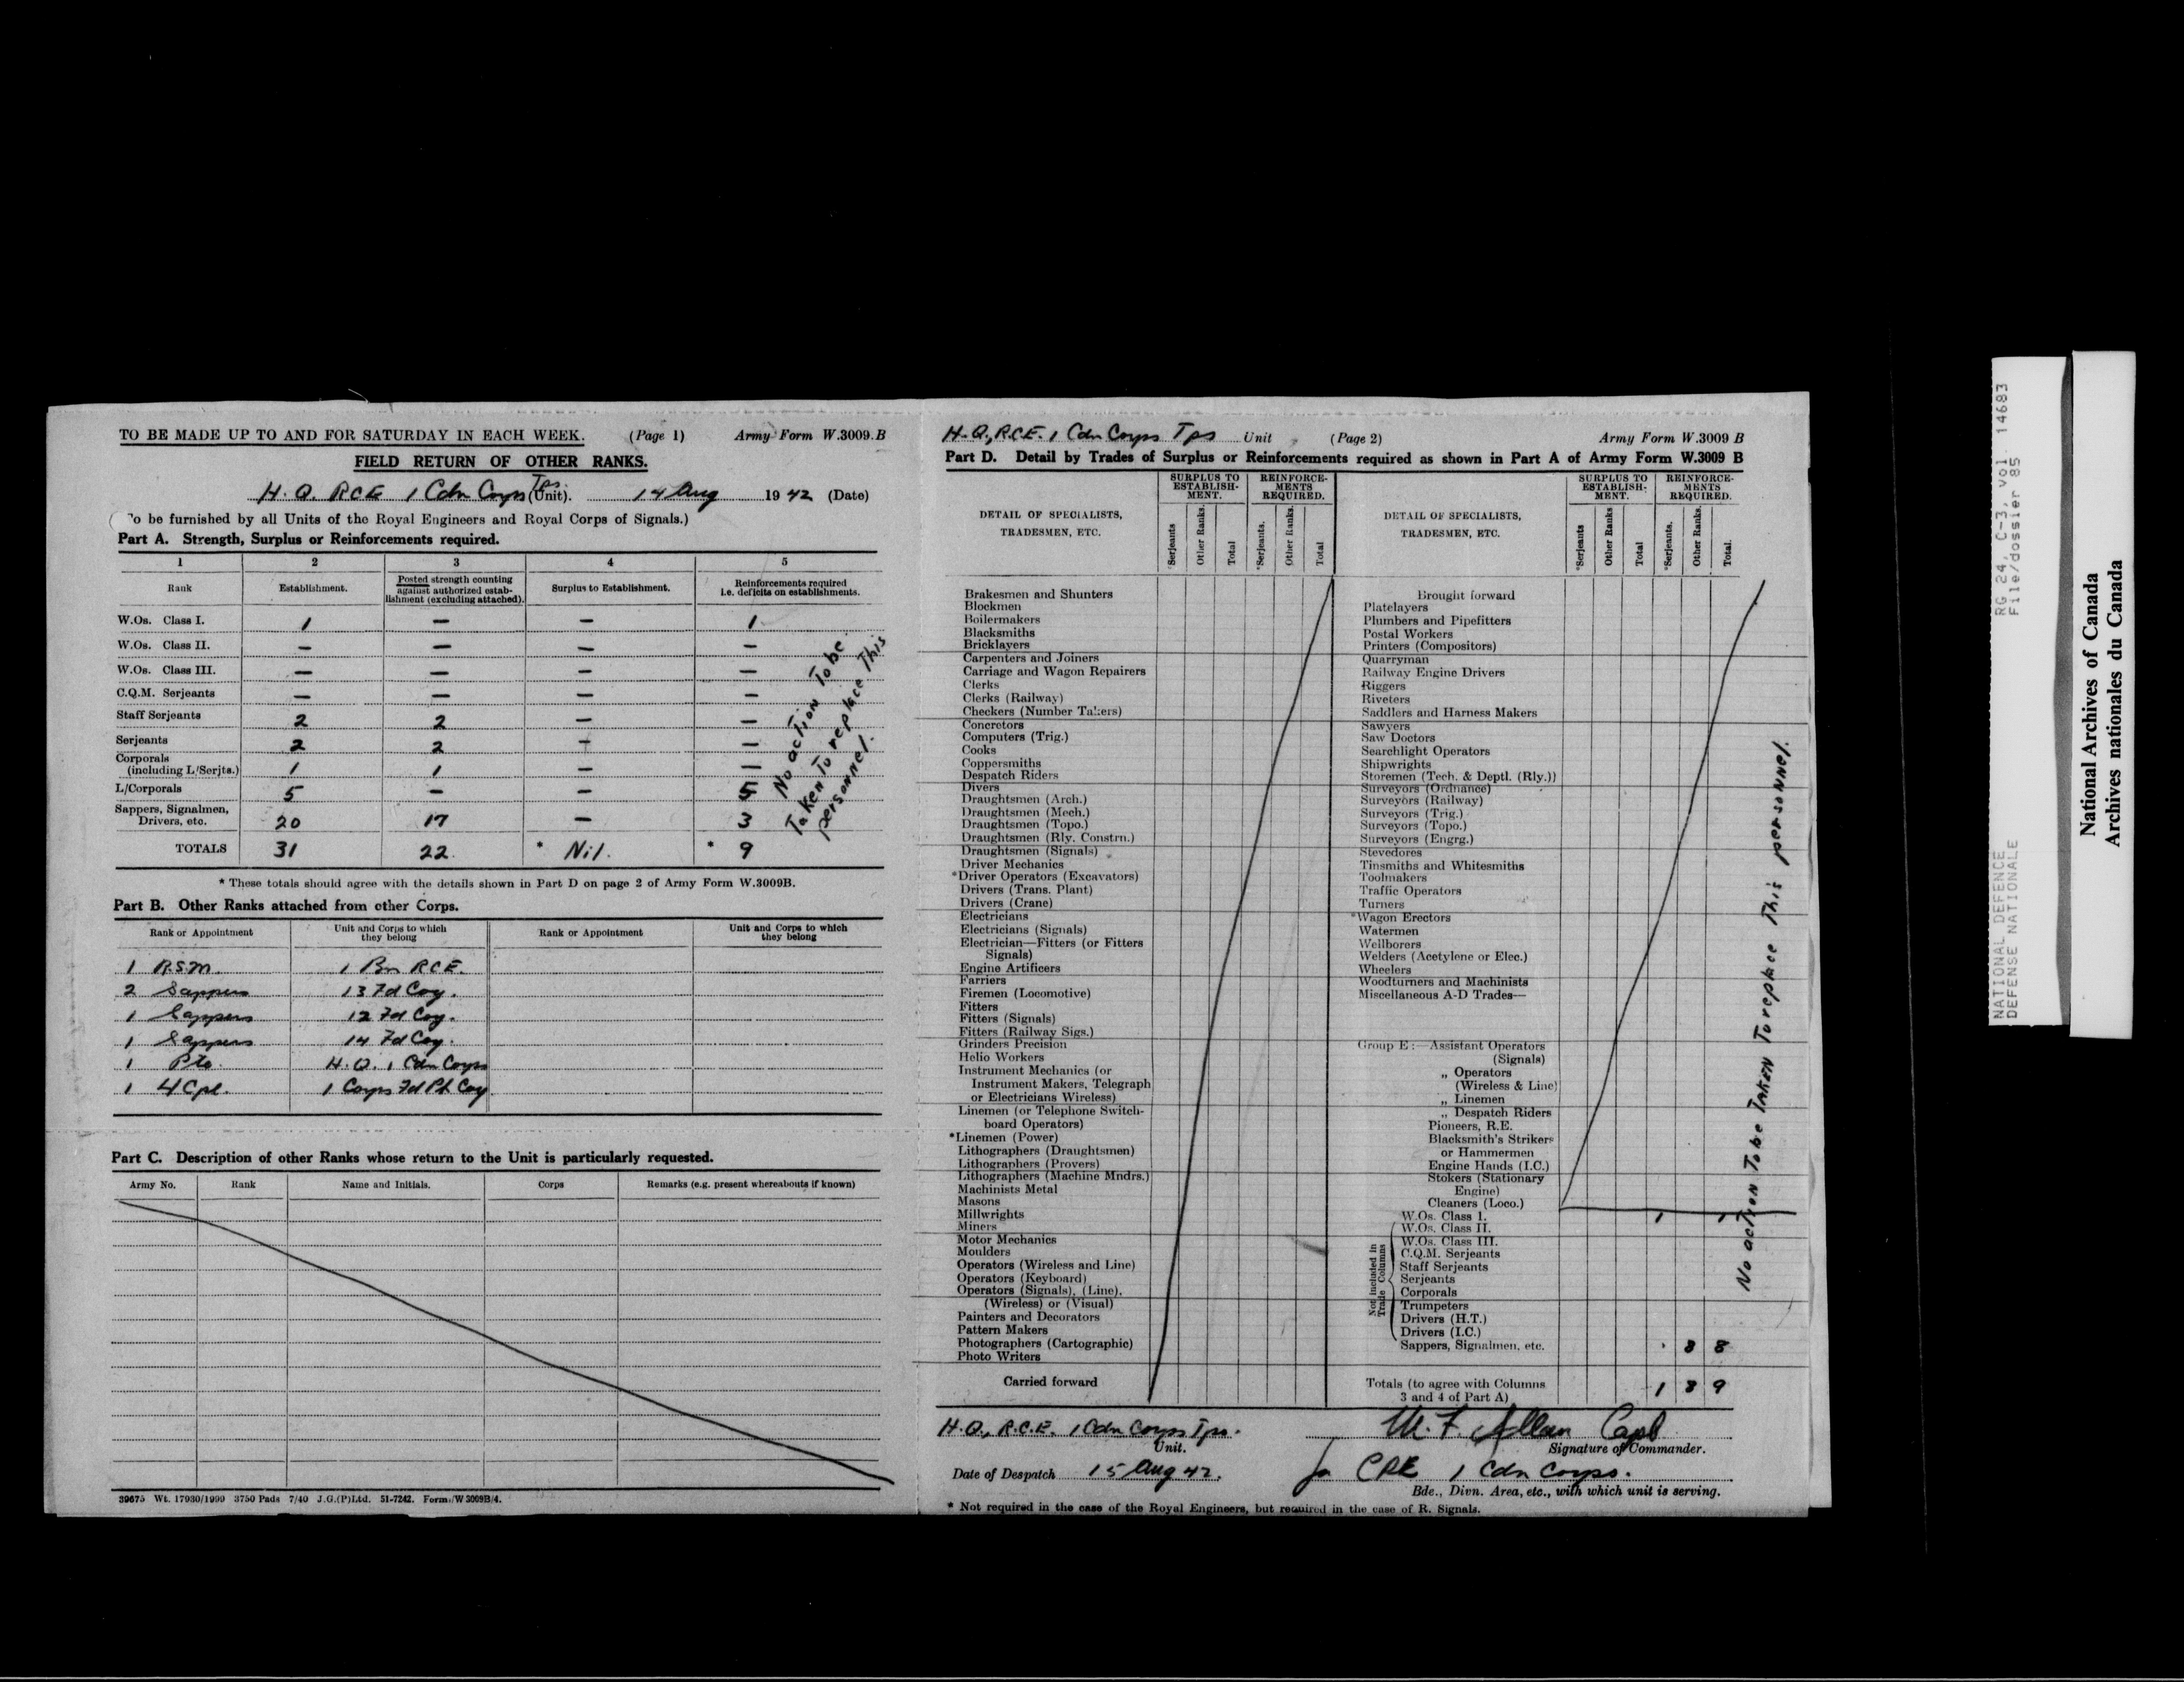 TO BE MADE UP TO AND FOR SATURDAY IN EACH WEEK. (Page 1) Army Form W.3009.B
FIELD RETURN OF OTHER RANKS.
H.Q. RCE 1 Cdn Corps Tps. (Unit). 14 Aug 1942 (Date)
To be furnished by all Units of the Royal Engineers and Royal Corps of Signals.)
Part A. Strength, Surplus or Reinforcements required.
1 2 3 4 5
Rank Establishment. Posted strength counting against authorized estab-lishment (excluding attached). Surplus to Establishment. Reinforcements required i.e. deficits on establishments.
W.Os. Class I. 1 — — 1
W.Os. Class II. — — — —
W.Os. Class III. — — — —
C.Q.M. Serjeants — — — —
Staff Serjeants 2 2 — —
Serjeants 2 2 — —
Corporals
(including L/Serjts.) 1 1 — —
L/Corporals 5 — — 5
Sappers, Signalmen,
Drivers, etc. 20 17 — 3
TOTALS 31 22 * Nil. * 9
No action To be
Taken To replace This
personnel.
* These totals should agree with the details shown in Part D on page 2 of Army Form W.3009B.
Part B. Other Ranks attached from other Corps.
Rank or Appointment Unit and Corps to which they belong Rank or Appointment Unit and Corps to which they belong
1 R.S.M. 1 Bn RCE.
2 Sappers 13 Fd Coy.
1 Sappers 12 Fd Coy.
1 Sappers 14 Fd Coy.
1 Pte. H.Q. 1 Cdn Corps
1 L/Cpl. 1 Corps Fd Pk Coy
Part C. Description of other Ranks whose return to the Unit is particularly requested.
Army No. Rank Name and Initials. Corps Remarks (e.g. present whereabouts if known)
39675 Wt. 17930/1999 3750 Pads 7/40 J.G.(P)Ltd. 51-7242. Forms/W3009B/4.
H.Q., R.C.E. 1 Cdn Corps Tps Unit (Page 2) Army Form W.3009 B
Part D. Detail by Trades of Surplus or Reinforcements required as shown in Part A of Army Form W.3009 B
DETAIL OF SPECIALISTS, TRADESMEN, ETC. SURPLUS TO ESTABLISH-MENT. REINFORCE-MENTS REQUIRED.
*Serjeants Other Ranks. Total *Serjeants. Other Ranks. Total
Brakesmen and Shunters
Blockmen
Boilermakers
Blacksmiths
Bricklayers
Carpenters and Joiners
Carriage and Wagon Repairers
Clerks
Clerks (Railway)
Checkers (Number Takers)
Concretors
Computers (Trig.)
Cooks
Coppersmiths
Despatch Riders
Divers
Draughtsmen (Arch.)
Draughtsmen (Mech.)
Draughtsmen (Topo.)
Draughtsmen (Rly. Constrn.)
Draughtsmen (Signals)
Driver Mechanics
*Driver Operators (Excavators)
Drivers (Trans. Plant)
Drivers (Crane)
Electricians
Electricians (Signals)
Electrician—Fitters (or Fitters
Signals)
Engine Artificers
Farriers
Firemen (Locomotive)
Fitters
Fitters (Signals)
Fitters (Railway Sigs.)
Grinders Precision
Helio Workers
Instrument Mechanics (or
Instrument Makers, Telegraph
or Electricians Wireless)
Linemen (or Telephone Switch-
board Operators)
*Linemen (Power)
Lithographers (Draughtsmen)
Lithographers (Provers)
Lithographers (Machine Mndrs.)
Machinists Metal
Masons
Millwrights
Miners
Motor Mechanics
Moulders
Operators (Wireless and Line)
Operators (Keyboard)
Operators (Signals), (Line),
(Wireless) or (Visual)
Painters and Decorators
Pattern Makers
Photographers (Cartographic)
Photo Writers
Carried forward
DETAIL OF SPECIALISTS, TRADESMEN, ETC. SURPLUS TO ESTABLISH-MENT. REINFORCE-MENTS REQUIRED.
*Serjeants Other Ranks Total *Serjeants. Other Ranks. Total.
Brought forward
Platelayers
Plumbers and Pipefitters
Postal Workers
Printers (Compositors)
Quarryman
Railway Engine Drivers
Riggers
Riveters
Saddlers and Harness Makers
Sawyers
Saw Doctors
Searchlight Operators
Shipwrights
Storemen (Tech. & Deptl. (Rly.))
Surveyors (Ordnance)
Surveyors (Railway)
Surveyors (Trig.)
Surveyors (Topo.)
Surveyors (Engrg.)
Stevedores
Tinsmiths and Whitesmiths
Toolmakers
Traffic Operators
Turners
*Wagon Erectors
Watermen
Wellborers
Welders (Acetylene or Elec.)
Wheelers
Woodturners and Machinists
Miscellaneous A-D Trades—
Group E:—Assistant Operators
(Signals)
„ Operators
(Wireless & Line)
„ Linemen
„ Despatch Riders
Pioneers, R.E.
Blacksmith's Strikers
or Hammermen
Engine Hands (I.C.)
Stokers (Stationary
Engine)
Cleaners (Loco.)
Not included in Trade Columns
W.Os. Class I. 1 1
W.Os. Class II.
W.Os. Class III.
C.Q.M. Serjeants
Staff Serjeants
Serjeants
Corporals
Trumpeters
Drivers (H.T.)
Drivers (I.C.)
Sappers, Signalmen, etc. 8 8
Totals (to agree with Columns
3 and 4 of Part A) 1 8 9
No action To be Taken To replace This personnel.
H.Q., R.C.E. 1 Cdn Corps Tps. Unit.
M. F. Allan Capt
Signature of Commander.
Date of Despatch 15 Aug 42.
for CRE 1 Cdn Corps.
Bde., Divn. Area, etc., with which unit is serving.
* Not required in the case of the Royal Engineers, but required in the case of R. Signals.
NATIONAL DEFENCE RG 24, C-3, vol. 14683
DEFENSE NATIONALE File/dossier 85
National Archives of Canada
Archives nationales du Canada